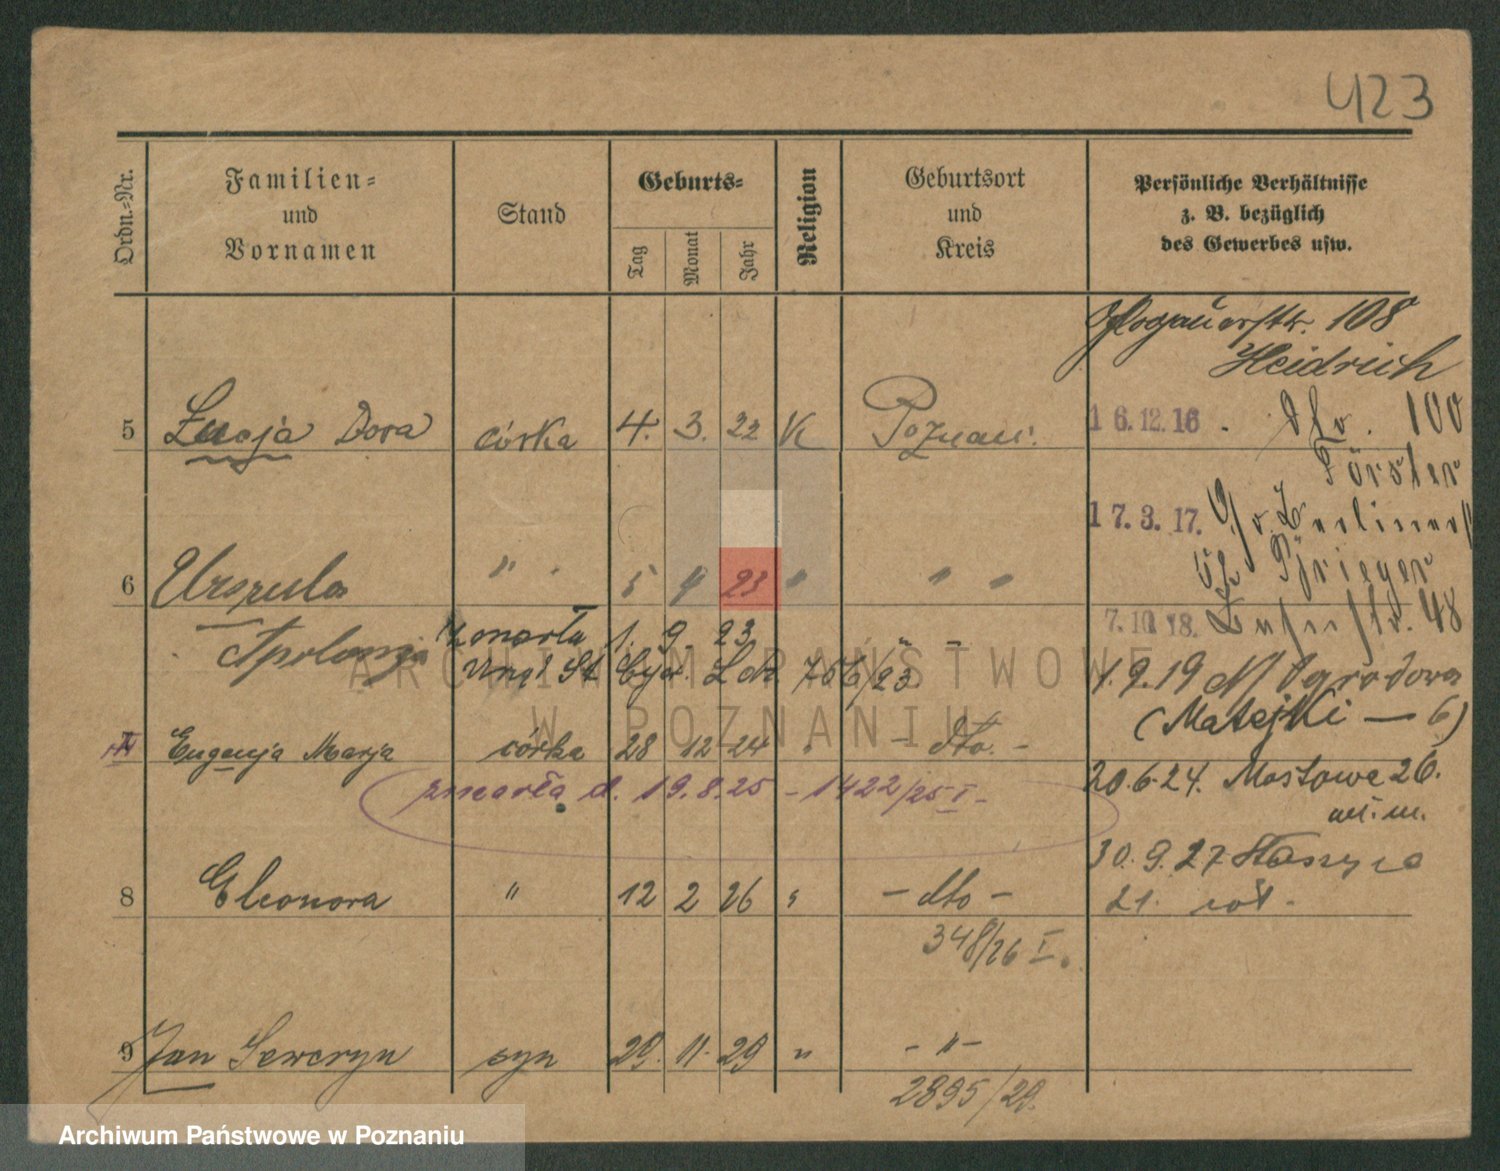 423
Ordn.-Nr.
Familien-
und
Vornamen
Stand
Geburts-
Tag
Monat
Jahr
Religion
Geburtsort
und
Kreis
Persönliche Verhältnisse
z. B. bezüglich
des Gewerbes usw.
Glogauerstr. 108
Heidrich
5 Łucja Dora córka 4. 3. 22 K Poznań.
16.12.16. dto. 100
Förster
17.3.17.
6 Urszula " 5 4 23 " " "
Krieger
7.10.18. 48
Apolonja zmarła 1. 9. 23
Urząd St. Cyw. L dz 766/23.
1.9.19 Ogrodowa
(Matejki — 6)
7 Eugenja Marja córka 28 12 24 " - dto. -
zmarła d. 19.8.25 - 1422/25 I -
20.6.24. Mostowa 26.
m.
30.9.27 Staszyca
8 Eleonora " 12 2 26 " - dto -
21.
348/26 I.
9 Jan Seweryn syn 29. 11. 29 " - " -
2895/29.
ARCHIWUM PAŃSTWOWE
W POZNANIU
Archiwum Państwowe w Poznaniu